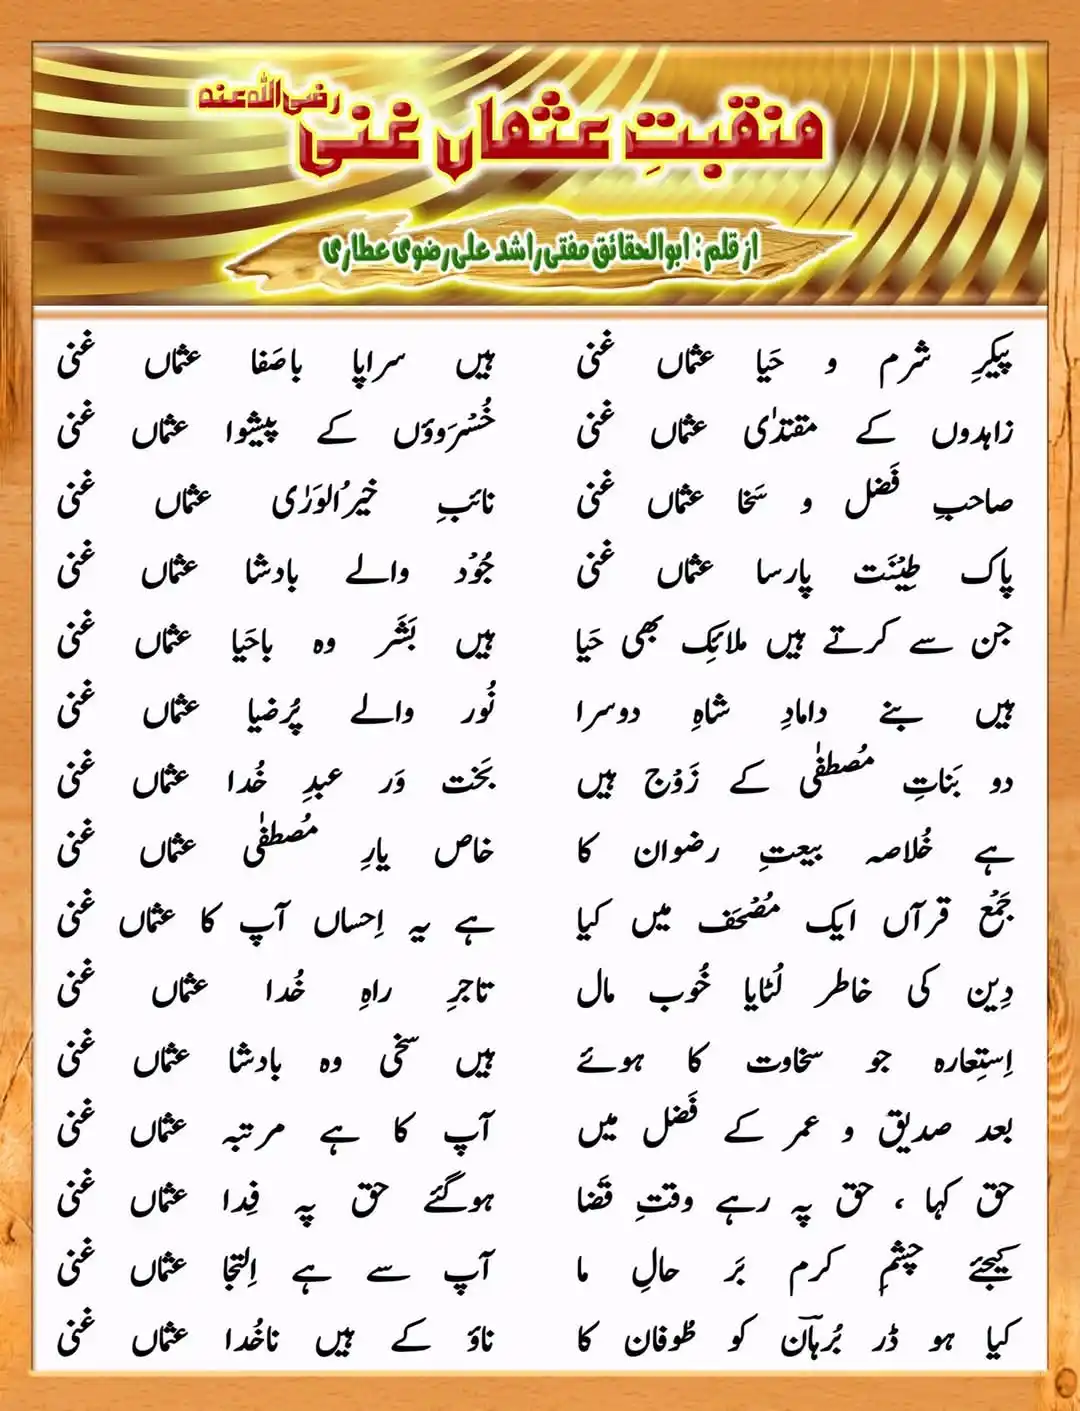 منقبتِ عثماں غنی رضی اللہ عنہ
از قلم: ابوالحقائق مفتی راشد علی رضوی عطاری
پیکرِ شرم و حَیا عثماں غنی ہیں سراپا باصَفا عثماں غنی
زاہدوں کے مقتدٰی عثماں غنی خُسْرَوؤں کے پیشوا عثماں غنی
صاحبِ فَضل و سَخا عثماں غنی نائبِ خیرُالوَرٰی عثماں غنی
پاک طِیْنَت پارسا عثماں غنی جُوْد والے بادشا عثماں غنی
جن سے کرتے ہیں ملائِک بھی حَیا ہیں بَشَر وہ باحَیا عثماں غنی
ہیں بنے دامادِ شاہِ دوسرا نُور والے پُرضیا عثماں غنی
دو بَناتِ مُصطفٰی کے زَوْج ہیں بَخت وَر عبدِ خُدا عثماں غنی
ہے خُلاصہ بیعتِ رضوان کا خاص یارِ مُصطفٰی عثماں غنی
جَمْع قرآں ایک مُصْحَف میں کیا ہے یہ اِحساں آپ کا عثماں غنی
دِین کی خاطر لُٹایا خُوب مال تاجرِ راہِ خُدا عثماں غنی
اِستِعارہ جو سخاوت کا ہوئے ہیں سخی وہ بادشا عثماں غنی
بعد صدیق و عمر کے فَضل میں آپ کا ہے مرتبہ عثماں غنی
حق کہا ، حق پہ رہے وقتِ قَضا ہوگئے حق پہ فِدا عثماں غنی
کیجئے چشمِ کرم بَر حالِ ما آپ سے ہے اِلتجا عثماں غنی
کیا ہو ڈر بُرہاؔن کو طُوفان کا ناؤ کے ہیں ناخُدا عثماں غنی